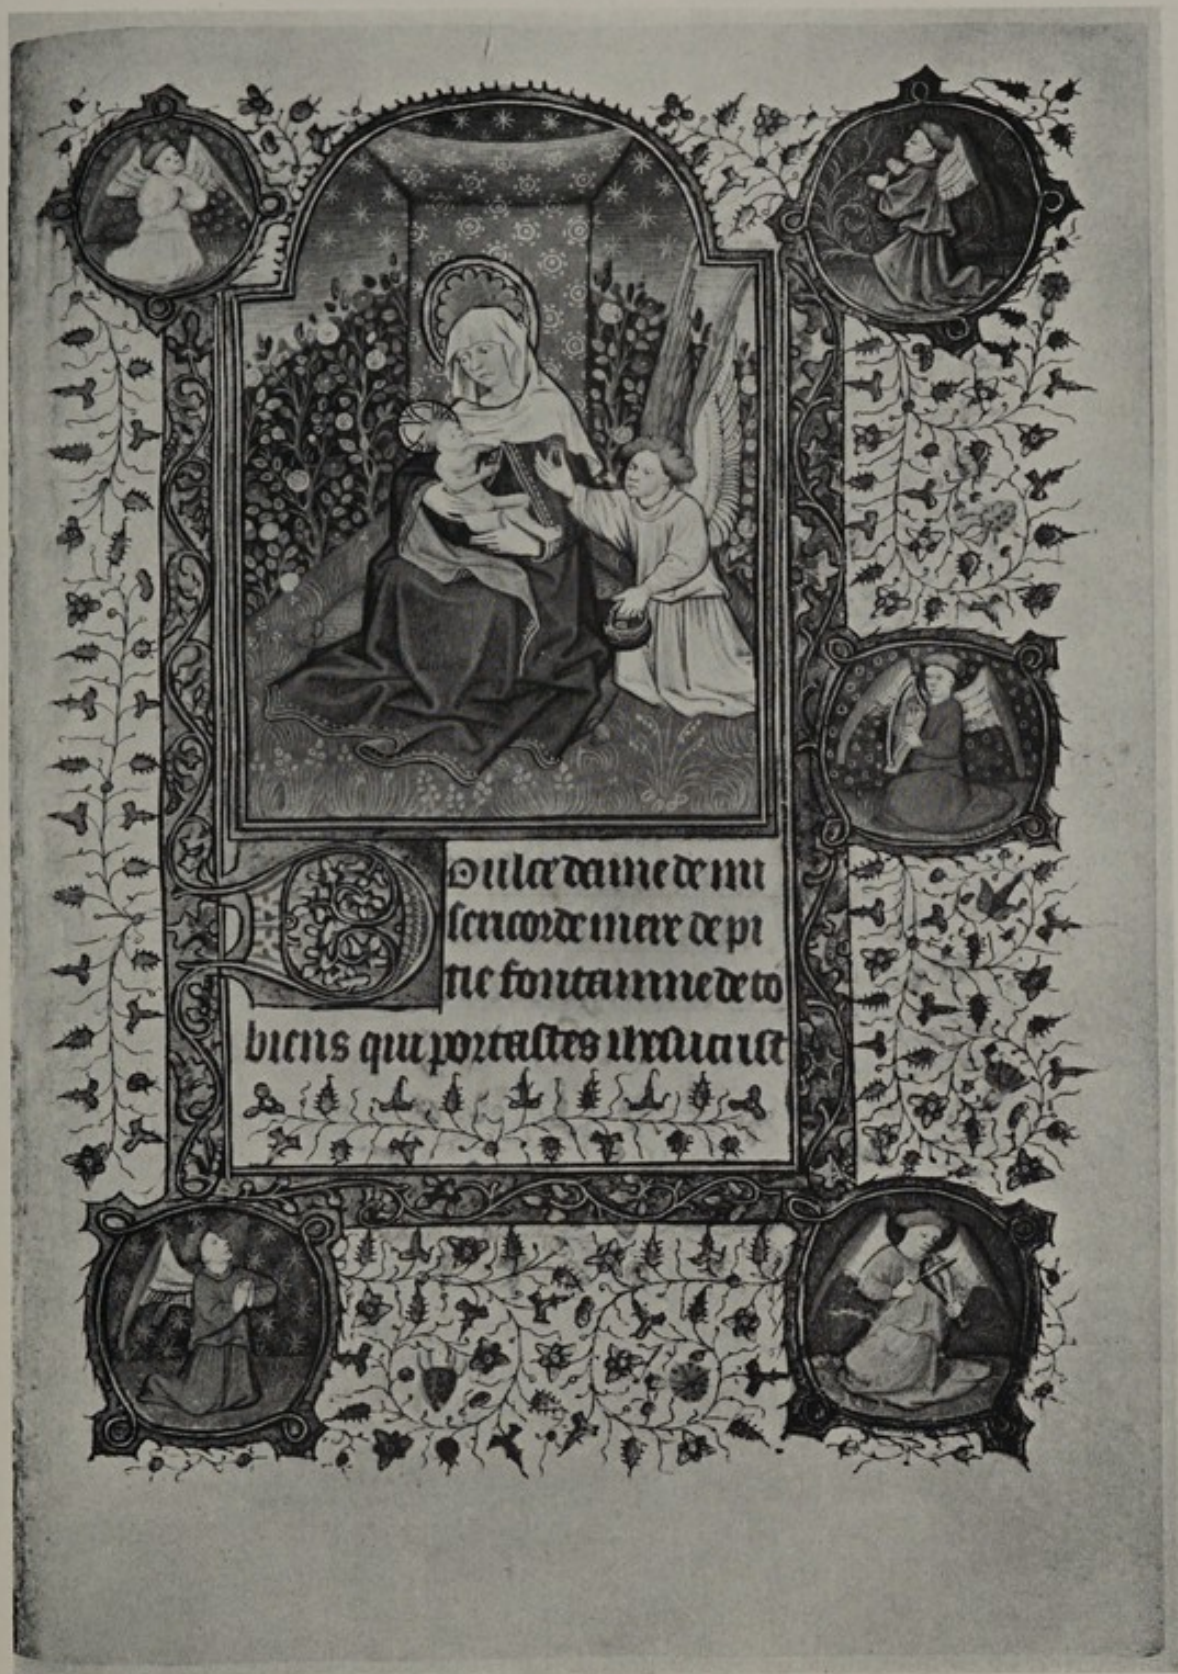 Doulce dame de mi
sericorde mere de pi
tie fontainne de to
biens qui portastes ihesucrist